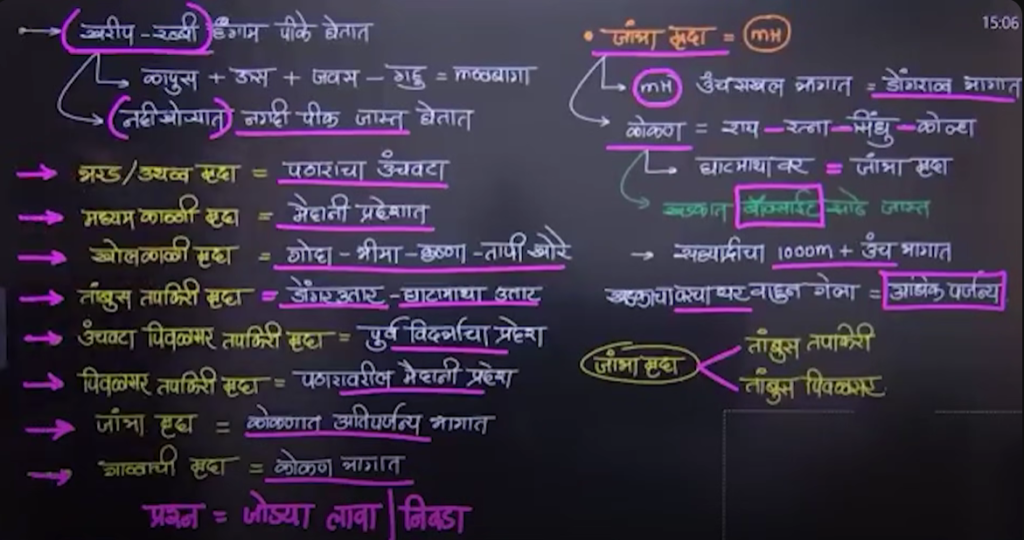 खरीप - रब्बी हंगाम पीके घेतात
कापुस + ऊस + जवस - गहु = मळबागा
(नदीखोऱ्यात) नगदी पीक जास्त घेतात
भरड/उथळ मृदा = पठारांचा उंचवटा
मध्यम काळी मृदा = मैदानी प्रदेशात
खोलकाळी मृदा = गोदा - भीमा - कृष्णा - तापी खोरे
तांबुस तपकिरी मृदा = डोंगरउतार - घाटमाथा उतार
उंचवटा पिवळसर तपकिरी मृदा = पुर्व विदर्भाचा प्रदेश
पिवळसर तपकिरी मृदा = पठारावरील मैदानी प्रदेश
जांभा मृदा = कोकणात अतिपर्जन्य भागात
गाळाची मृदा = कोकण भागात
प्रश्न = जोड्या लावा | निवडा
15:06
• जांभा मृदा = MH
MH उंचसखल भागात = डोंगराळ भागात
कोकण = राय - रत्ना - सिंधु - कोल्हा
घाटमाथा वर = जांभा मृदा
खडकात बॉक्साईट साठे जास्त
→ सह्याद्रीचा 1000m + उंच भागात
खडकाचा वरचा थर वाहुन गेला = अधिक पर्जन्य
जांभा मृदा
तांबुस तपकिरी
तांबुस पिवळसर